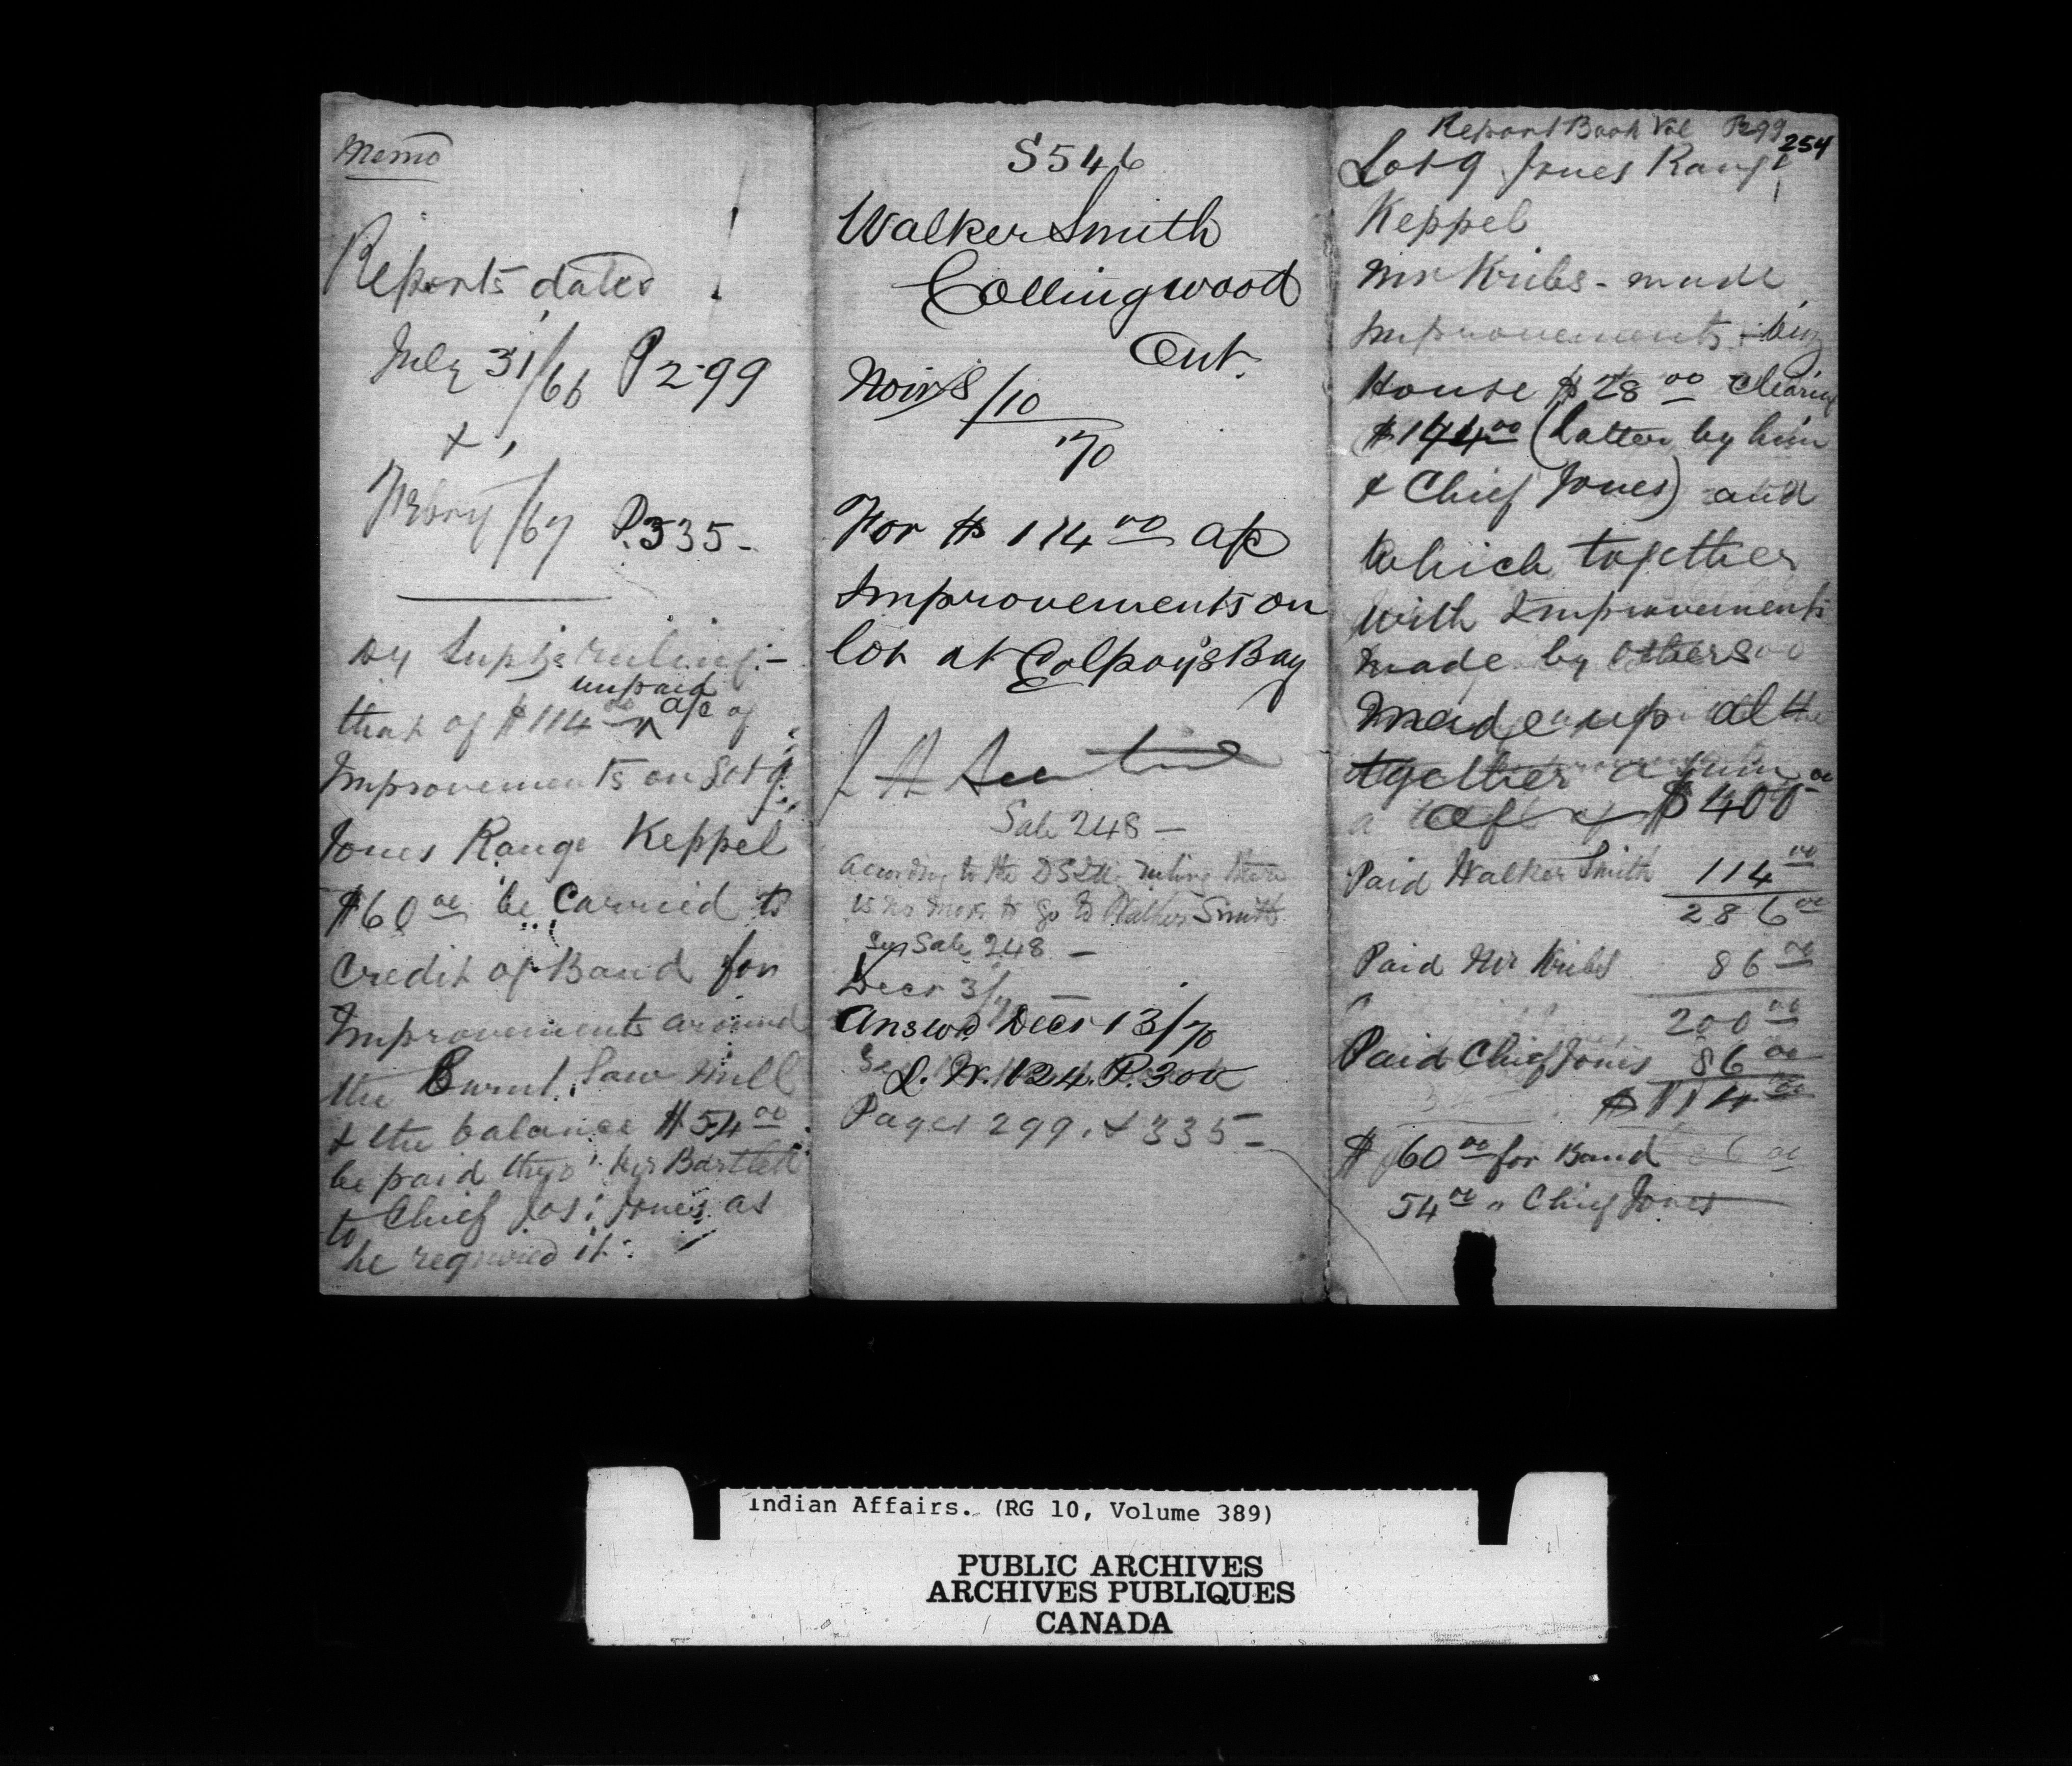 Memo
Reports dated
July 31/66 P299
& 
Febry/67 P.335-
Dy Supts ruling:-
unpaid
that of $114 00 a/c of
Improvements on Lot 9
Jones Range Keppel
$60 00 be carried to
Credit of Band for
Improvements around
the Burnt Saw Mill
& the balance $54 00
be paid thro' Mr Bartlett
to Chief Jos: Jones as
he required it.
S546
Walker Smith
Collingwood
Ont.
Novr 8/10
'70
For $114 00 a/c
Improvements on
lot at Colpoy's Bay
Sale 248 -
According to the DSG's ruling there
is no more to go to Walker Smith
See Sale 248 -
Decr 3/70 -
Answd Decr 13/70
L. W. 124. P. 300
Pages 299. & 335-
Report Book Vol P299
254
Lot 9 Jones Range
Keppel
Mr Kribs - made
improvements: - being
House $28 00 Clearing
$144 00 (latter by him
& Chief Jones) and
which together
with Improvements
made by Others
made up al
together a sum
of $400 00
Paid Walker Smith 114 00
286 00
Paid Mr Kribs 86 00
200 00
Paid Chief Jones 86 00
$114 00
$60 00 for Band
54 00 " Chief Jones
Indian Affairs. (RG 10, Volume 389)
PUBLIC ARCHIVES
ARCHIVES PUBLIQUES
CANADA